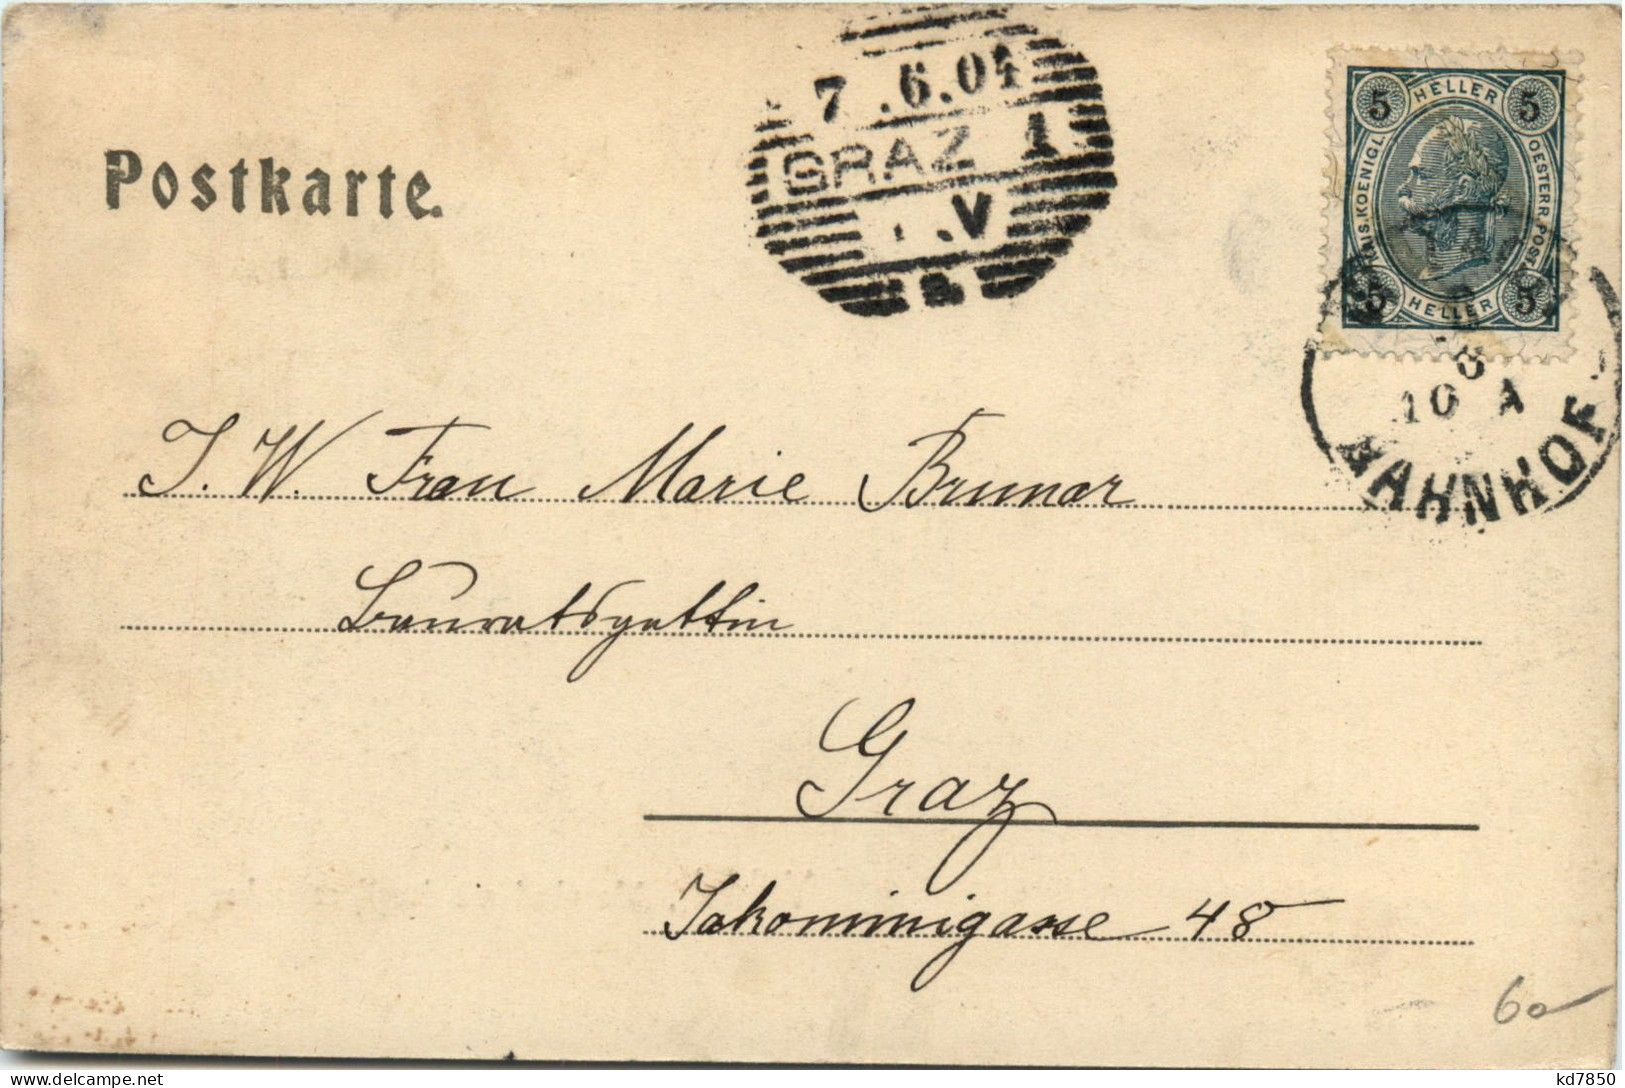 Postkarte.
7.6.04
GRAZ 1
.V
5 HELLER 5
KAIS. KOENIGL. OESTERR. POST
5 HELLER 5
10 A
BAHNHOF
I. W. Frau Marie Brunar
Bauratsgattin
Graz
Jakominigasse 48
60
kd7850